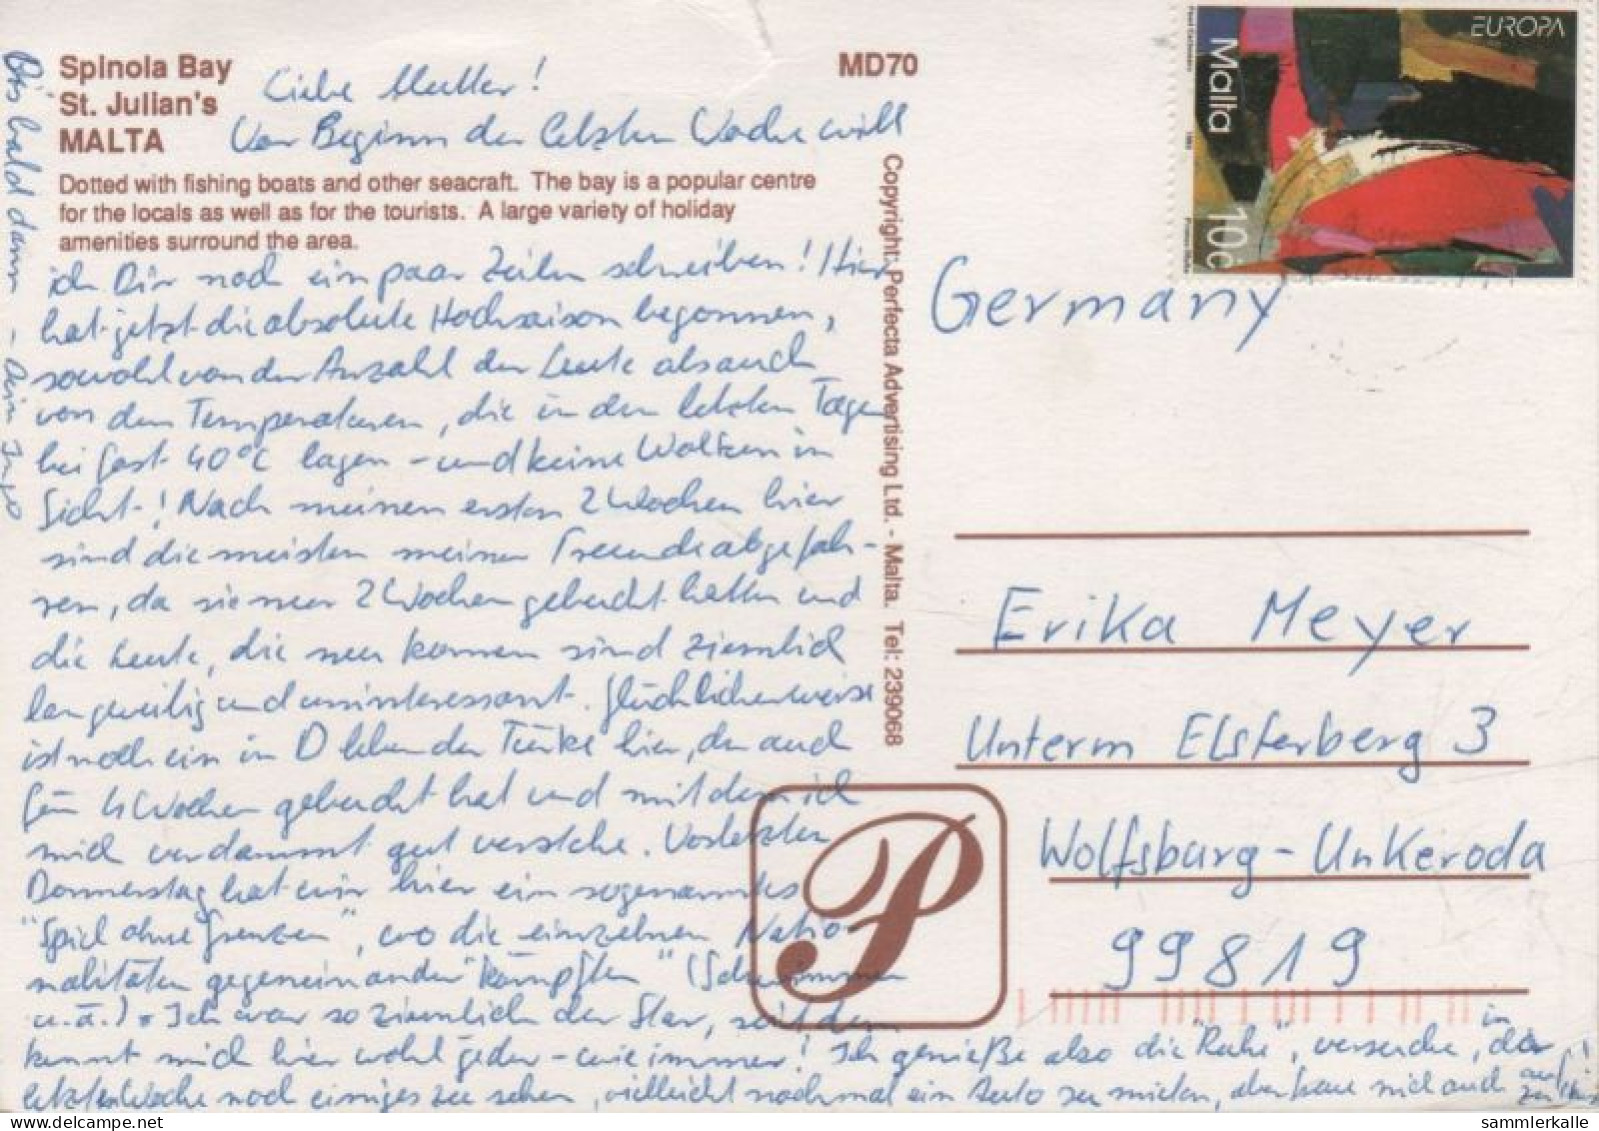 Spinola Bay
St. Julian's
MALTA
MD70
Dotted with fishing boats and other seacraft. The bay is a popular centre
for the locals as well as for the tourists. A large variety of holiday
amenities surround the area.
Copyright: Perfecta Advertising Ltd. - Malta. Tel: 239068
EUROPA
Malta
10c
Liebe Mutter!
Vor Beginn der letzten Woche will
ich Dir noch ein paar Zeilen schreiben! Hier
hat jetzt die absolute Hochsaison begonnen,
sowohl von der Anzahl der Leute als auch
von den Temperaturen, die in den letzten Tagen
bei fast 40°C lagen - und keine Wolken in
Sicht! Nach meinen ersten 2 Wochen hier
sind die meisten meiner Freunde abgefah-
ren, da sie nur 2 Wochen gebucht hatten und
die Leute, die neu kamen sind ziemlich
langweilig und uninteressant. Glücklicherweise
ist noch ein in D lebender Türke hier, der auch
für 4 Wochen gebucht hat und mit dem ich
mich verdammt gut verstehe. Vorletzten
Donnerstag hat wir hier ein sogenanntes
"Spiel ohne Grenzen", wo die einzelnen Natio-
nalitäten gegeneinander "kämpften" (Schwimmen
u.ä.). Ich war so ziemlich der Star, seitdem
kennt mich hier wohl jeder - wie immer! Ich genieße also die "Ruhe", versuche, in der
letzten Woche noch einiges zu sehen, vielleicht nochmal ein Auto zu mieten, aber freue mich auch auf
Bis bald dann - Dein Ingo
Germany
Erika Meyer
Unterm Elsterberg 3
Wolfsburg-Unkeroda
99819
sammlerkalle